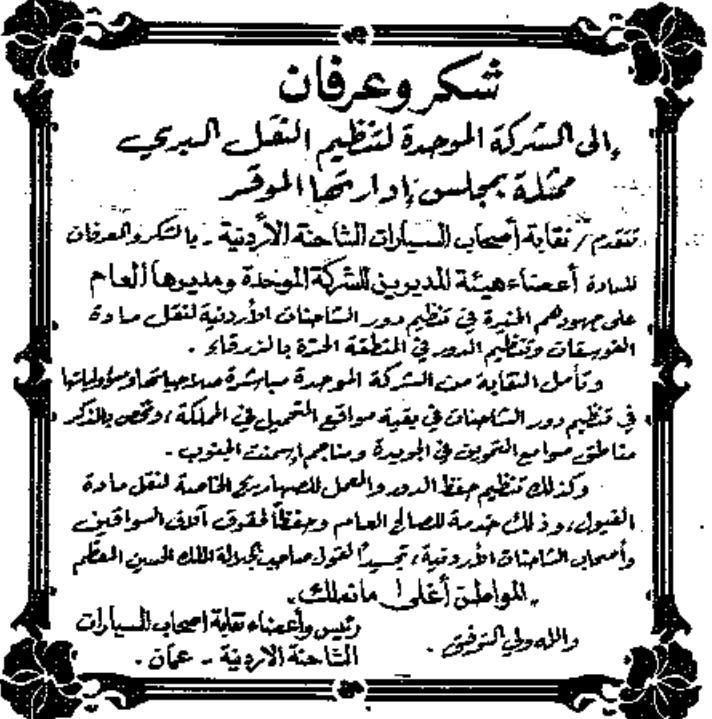 شكر وعرفان
إلى الشركة الموحدة لتنظيم النقل البري
ممثلة بمجلس إدارتها الموقر
تتقدم نقابة أصحاب السيارات الشاحنة الأردنية - بالشكر والعرفان
للسادة أعضاء هيئة المديرين للشركة الموحدة ومديرها العام
على جهودهم المنيرة في تنظيم دور الشاحنات الأردنية لنقل مادة
الفوسفات وتنظيم الدور في المنطقة الحرة بالزرقاء .
وتأمل النقابة من الشركة الموحدة مباشرة صلاحياتها ومسؤولياتها
في تنظيم دور الشاحنات في بقية مواقع التحميل في المملكة، ونخص بالذكر
مناطق صوامع التموين في الجويدة ومناجم إسمنت الجنوب -
وكذلك تنظيم حفظ الدور والعمل للصهاريج الخاصة لنقل مادة
الفيول، وذلك خدمة للصالح العام وحفظاً لحقوق آلاف السواقين
وأصحاب الشاحنات الأردنية، تجسيداً لقول صاحب الجلالة الملك الحسين المعظم
"المواطن أغلى ما نملك"
والله ولي التوفيق .
رئيس وأعضاء نقابة أصحاب السيارات
الشاحنة الأردنية - عمان .